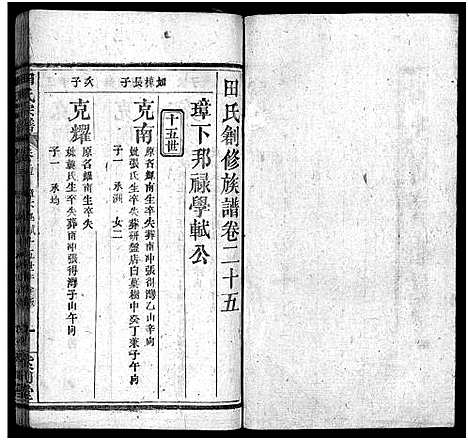 田氏創修族譜卷二十五
璋下邦祿學軾公
十五世
如棟長子
克南
原名顯南生卒失葬南冲張得灣乙山辛向
娶張氏生卒失葬研盤店白菓樹中癸丁兼子午向
子一 承洲 女二
次子
克耀
原名顯南生卒失
娶龔氏生卒失葬南冲張得灣子山午向
子一 承均